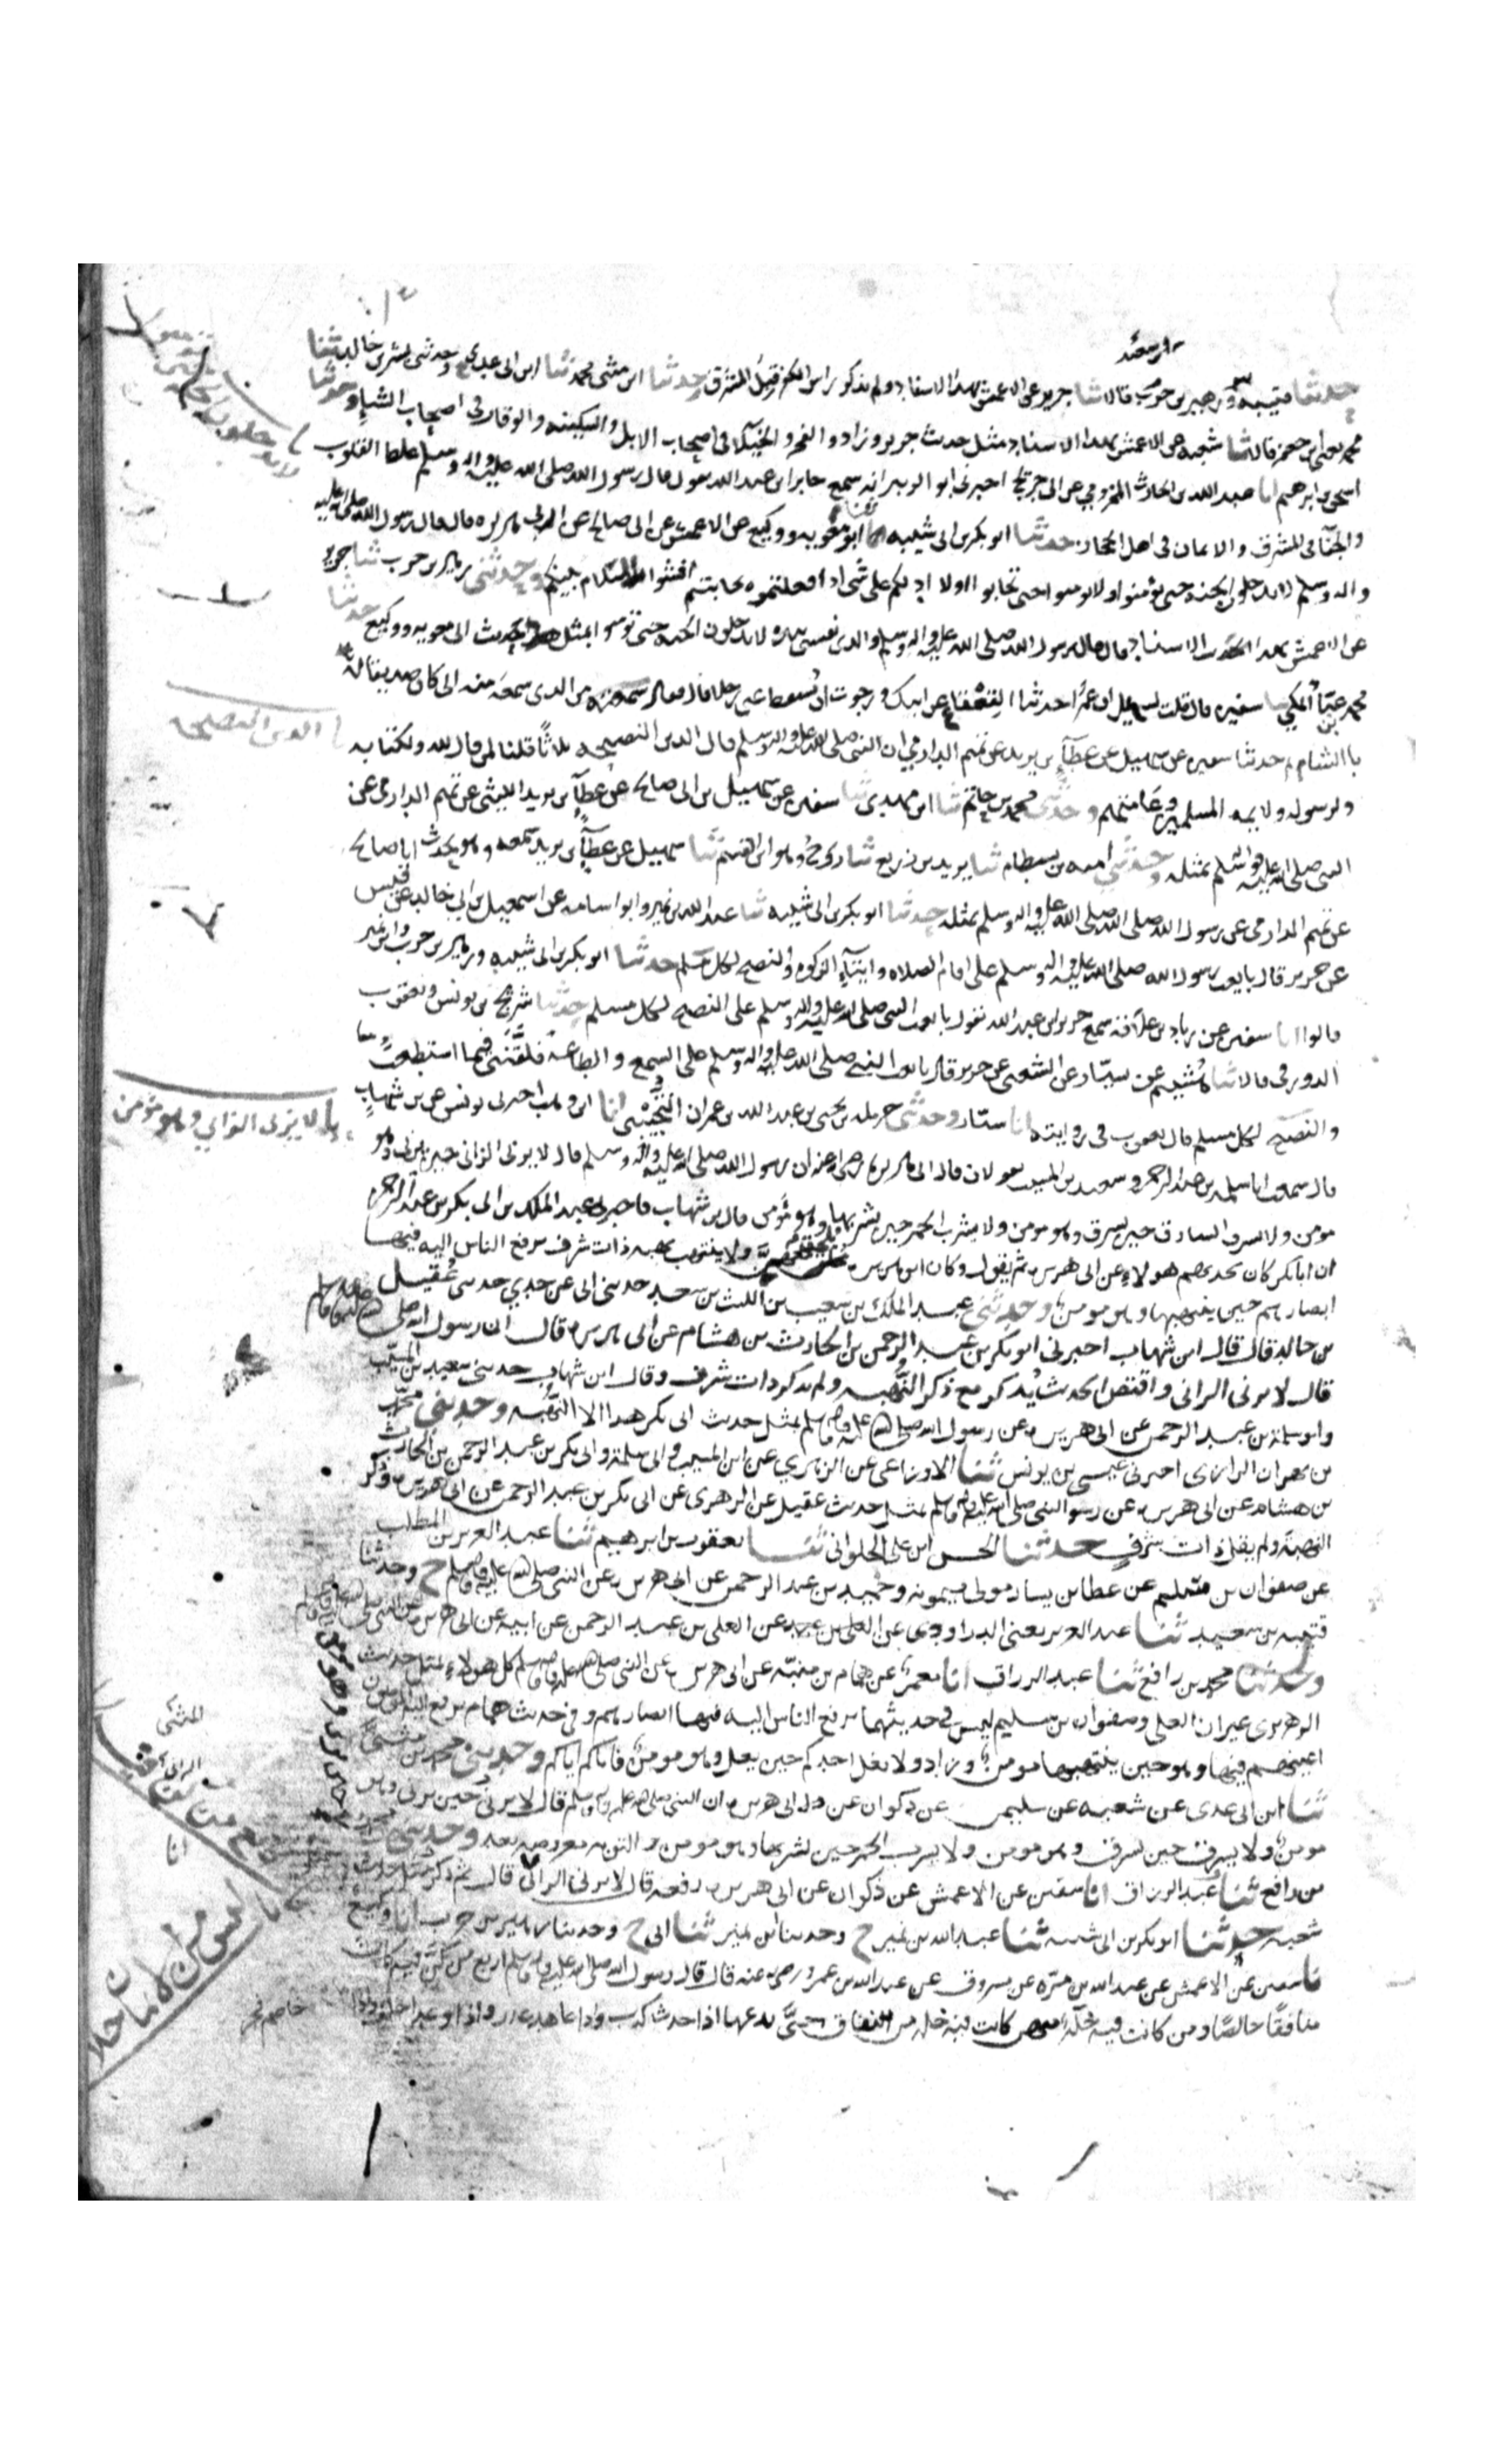 بن سعيد
حدثنا قتيبه وزهير بن حرب قالا ثنا جرير عن الاعمش بهذا الاسناد ولم يذكر راس الكفر قبل المشرق وحدثنا ابن مثنى محمد ثنا ابن ابى عدى ح وحدثنى بشر بن خالد ثنا
محمد يعنى ابن جعفر قالا ثنا شعبه عن الاعمش بهذا الاسناد مثل حديث جرير وزاد والفخر والخيلا فى اصحاب الابل والسكينه والوقار فى اصحاب الشاء وحدثنا
اسحق بن ابرهيم انا عبد الله بن الحارث المخزومي عن ابن جريج اخبرنى ابو الزبير انه سمع جابر ابن عبد الله يقول قال رسول الله صلى الله عليه واله وسلم غلظ القلوب
والجفا فى المشرق والايمان فى اهل الحجاز حدثنا ابو بكر بن ابى شيبه ثنا ابو معويه ووكيع عن الاعمش عن ابى صالح عن ابى هريره قال قال رسول الله صلى الله عليه
واله وسلم لا تدخلون الجنه حتى تؤمنوا ولا تومنوا حتى تحابوا اولا ادلكم على شى اذا فعلتموه تحاببتم افشوا السلام بينكم وحدثنى زهير بن حرب ثنا جرير
عن الاعمش بهذا الاسناد قال قال رسول الله صلى الله عليه واله وسلم والذى نفسى بيده لا تدخلون الجنه حتى تومنوا بمثل حديث ابى معويه ووكيع حدثنا
محمد بن عباد المكي ثنا سفين قال قلت لسهيل ان عمرا حدثنا القعقاع عن ابيك ورجوت ان يسقط عنى رجلا قال فقال سمعته من الذى سمعه منه ابى كان صديقا له
با الشام حدثنا سفين عن سهيل عن عطاء بن يزيد عن تميم الدارمي ان النبى صلى الله عليه واله وسلم قال الدين النصيحه ثلاثا قلنا لمن قال لله ولكتابه
ولرسوله ولايمه المسلمين وعامتهم وحدثنى محمد بن حاتم ثنا ابن مهدى ثنا سفين عن سهيل بن ابى صالح عن عطاء بن يزيد الليثى عن تميم الدارمى عن
النبى صلى الله عليه واله وسلم بمثله وحدثنى اميه بن بسطام ثنا يزيد بن زريع ثنا روح وهو ابن القسم ثنا سهيل عن عطاء بن يزيد سمعه وهو يحدث ابا صالح
عن تميم الدارمى عن رسول الله صلى الله صلى الله عليه واله وسلم بمثله حدثنا ابو بكر بن ابى شيبه ثنا عبد الله بن نمير وابو اسامه عن اسمعيل بن ابي خالد عن قيس
عن جرير قال بايعت رسول الله صلى الله عليه واله وسلم على اقام الصلاه وايتاء الزكوه والنصح لكل مسلم حدثنا ابو بكر بن ابى شيبه وزهير بن حرب وابن نمير
قالوا انا سفين عن زياد بن علاقه سمع جرير ابن عبد الله يقول بايعت النبى صلى الله عليه واله وسلم على النصح لكل مسلم حدثنا شريح بن يونس ويعقوب
الدورقى قالا ثنا هشيم عن سيار عن الشعبى عن جرير قال بايعت النبى صلى الله عليه واله وسلم على السمع والطاعه فلقننى فيما استطعت
والنصح لكل مسلم قال يعقوب فى روايته انا سيار وحدثنى حرمله بن يحيى بن عبد الله بن عمران التجيبى انا ابن وهب اخبرنى يونس عن بن شهاب
قال سمعت ابا سلمه بن عبد الرحمن وسعيد بن المسيب يقولان قال ابى هريره رضى الله عنه ان رسول الله صلى الله عليه واله وسلم قال لا يزنى الزانى حين يزنى وهو
مومن ولا يسرق السارق حين يسرق وهو مومن ولا يشرب الخمر حين يشربها وهو مؤمن قال بن شهاب فاخبرنى عبد الملك بن ابى بكر بن عبد الرحمن
ان ابا بكر كان يحدثهم هولاء عن ابى هريره ثم يقول وكان ابو هريره يلحق معهن ولا ينتهب نهبه ذات شرف يرفع الناس اليه فيها
ابصارهم حين ينتهبها وهو مومن وحدثنى عبد الملك بن شعيب بن الليث بن سعد حدثنى ابى عن جدي حدثنى عقيل
بن خالد قال قال ابن شهاب اخبرنى ابو بكر بن عبد الرحمن بن الحارث بن هشام عن ابى هريره قال ان رسول الله صلى الله عليه واله وسلم
قال لا يزنى الزانى واقتص الحديث يذكر مع ذكر النهبه ولم يذكر ذات شرف وقال ابن شهاب حدثنى سعيد بن المسيب
وابو سلمة بن عبد الرحمن عن ابى هريره عن رسول الله صلى الله عليه واله وسلم بمثل حديث ابى بكر هذا الا النهبه وحدثنى محمد
بن مهران الرازى اخبرنى عيسى بن يونس ثنا الاوزاعى عن الزهري عن ابن المسيب وابى سلمة وابى بكر بن عبد الرحمن بن الحارث
بن هشام عن ابى هريره عن رسول النبى صلى الله عليه واله وسلم بمثل حديث عقيل عن الزهرى عن ابى بكر بن عبد الرحمن عن ابى هريره وذكر
النهبة ولم يقل ذات شرف حدثنا الحسن ابن على الحلوانى ثنا يعقوب بن ابرهيم ثنا عبد العزيز بن المطلب
عن صفوان بن سليم عن عطا بن يسار مولى ميمونه وحميد بن عبد الرحمن عن ابى هريره عن النبى صلى الله عليه واله وسلم ح وحدثنا
قتيبه بن سعيد ثنا عبد العزيز يعنى الدراوردى عن العلى بن عبد الرحمن عن ابيه عن ابى هريره عن النبى صلى الله عليه واله وسلم
وحدثنا محمد بن رافع ثنا عبد الرزاق انا معمر عن همام بن منبه عن ابى هريره عن النبى صلى الله عليه واله وسلم كل هولاء بمثل حديث
الزهرى غير ان العلى وصفوان بن سليم ليس فى حديثهما يرفع الناس اليه فيها ابصارهم وفى حديث همام يرفع اليه المومنون
اعينهم فيها وهو حين ينتهبها مومن وزاد ولا يغل احدكم حين يغل وهو مومن فاياكم اياكم وحدثنى محمد بن مثنى
ثنا ابن ابى عدى عن شعبه عن سليمن عن ذكوان عن ابى هريره ان النبى صلى الله عليه واله وسلم قال لا يزنى حين يزنى وهو
مومن ولا يسرق حين يسرق وهو مومن ولا يشرب الخمر حين يشربها وهو مومن والتوبه معروضه بعد وحدثنى محمد
بن رافع ثنا عبد الرزاق انا سفين عن الاعمش عن ذكوان عن ابى هريره رفعه قال لا يزنى الزانى قال ثم ذكر بمثل حديث
شعبه حدثنا ابو بكر بن ابى شيبه ثنا عبد الله بن نمير ح وحدثنا ابن نمير ثنا ابى ح وحدثنا زهير بن حرب انا وكيع
نا سفين عن الاعمش عن عبد الله بن مره عن مسروق عن عبد الله بن عمرو رضى عنه قال قال رسول الله صلى الله عليه واله وسلم اربع من كن فيه كان
منافقا خالصا ومن كانت فيه خلة منهن كانت فيه خله من النفاق حتى يدعها اذا حدث كذب واذا عاهد غدر واذا وعد اخلف واذا
خاصم فجر
الدين النصيحه
لا يزنى الزاني وهو مؤمن